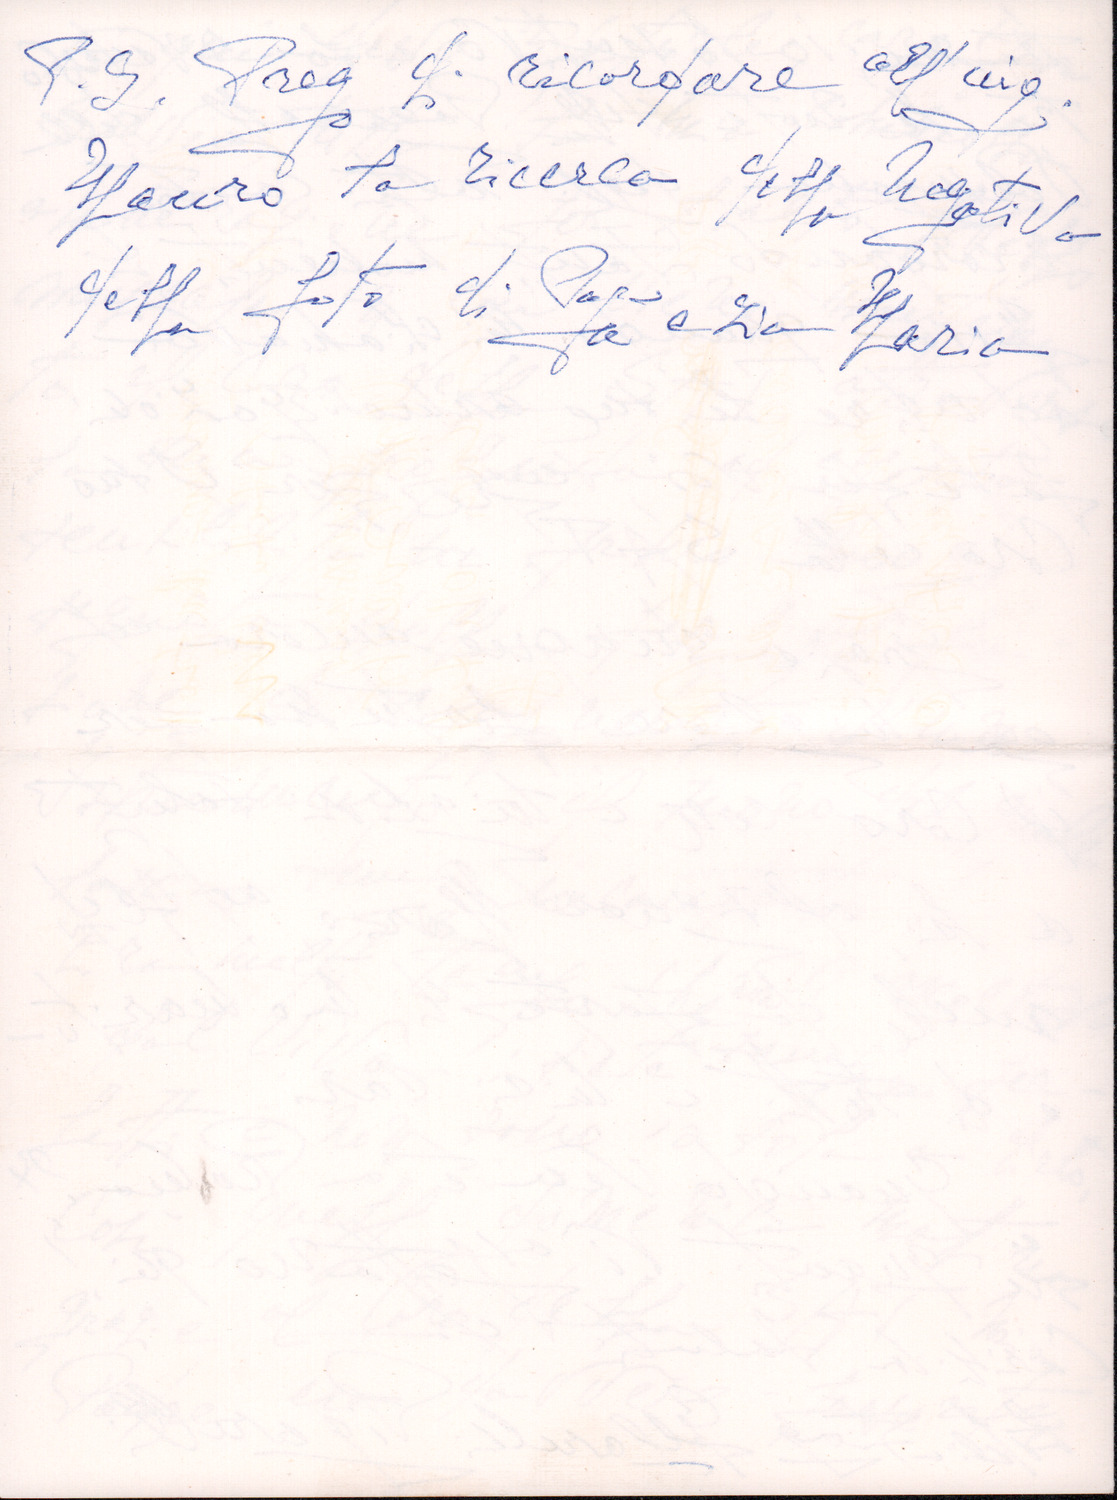 P.S. Prego di ricordare all'ing.
Mauro la ricerca della negativa
della foto di Papà e zia Maria